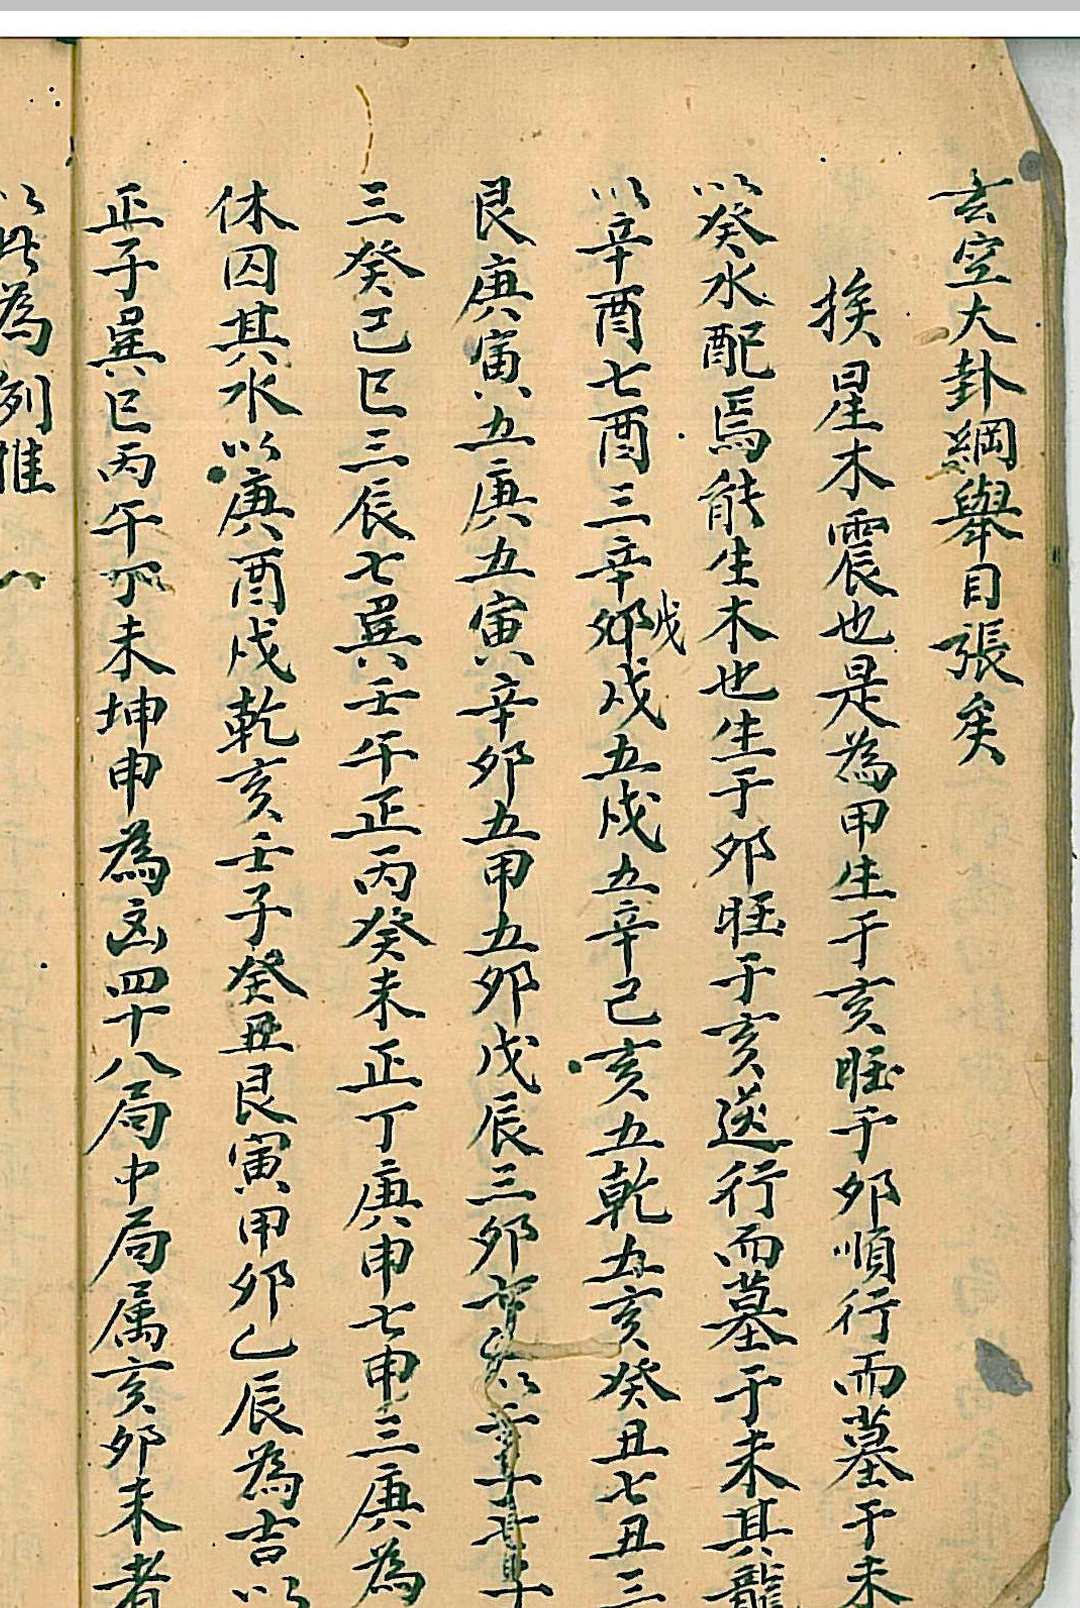 玄空大卦綱舉目張矣
挨星木震也是為甲生于亥旺于卯順行而墓于未
以癸水配焉能生木也生于卯旺于亥送行而墓于未其龍
以辛酉七酉三辛卯戌戌五戌五辛己亥五乾五亥癸丑七丑三
艮庚寅五庚五寅辛卯五甲五卯戊辰三卯
三癸己巳三辰七巽壬午正丙癸未正丁庚申七申三庚為
休囚其水以庚酉戌乾亥壬子癸丑艮寅甲卯乙辰為吉以
正子巽巳丙午丁未坤申為凶四十八局中局属亥卯未者
以此為列推